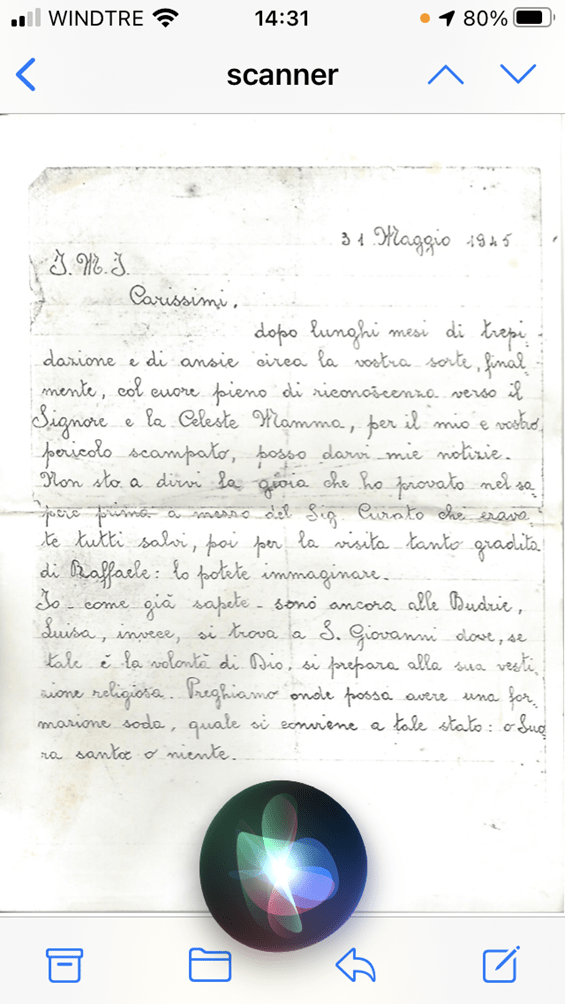 WINDTRE 14:31 80%
scanner
31 Maggio 1945
J. M. J.
Carissimi,
dopo lunghi mesi di trepi-
dazione e di ansie circa la vostra sorte, final-
mente, col cuore pieno di riconoscenza verso il
Signore e la Celeste Mamma, per il mio e vostro
pericolo scampato, posso darvi mie notizie.
Non sto a dirvi la gioia che ho provato nel sa-
pere prima a mezzo del Sig. Curato che erava-
te tutti salvi, poi per la visita tanto gradita
di Raffaele: lo potete immaginare.
Io - come già sapete - sono ancora alle Budrie,
Luisa, invece, si trova a S. Giovanni dove, se
tale è la volontà di Dio, si prepara alla sua vesti-
zione religiosa. Preghiamo onde possa avere una for-
mazione soda, quale si conviene a tale stato: o Suo
ra santa o niente.